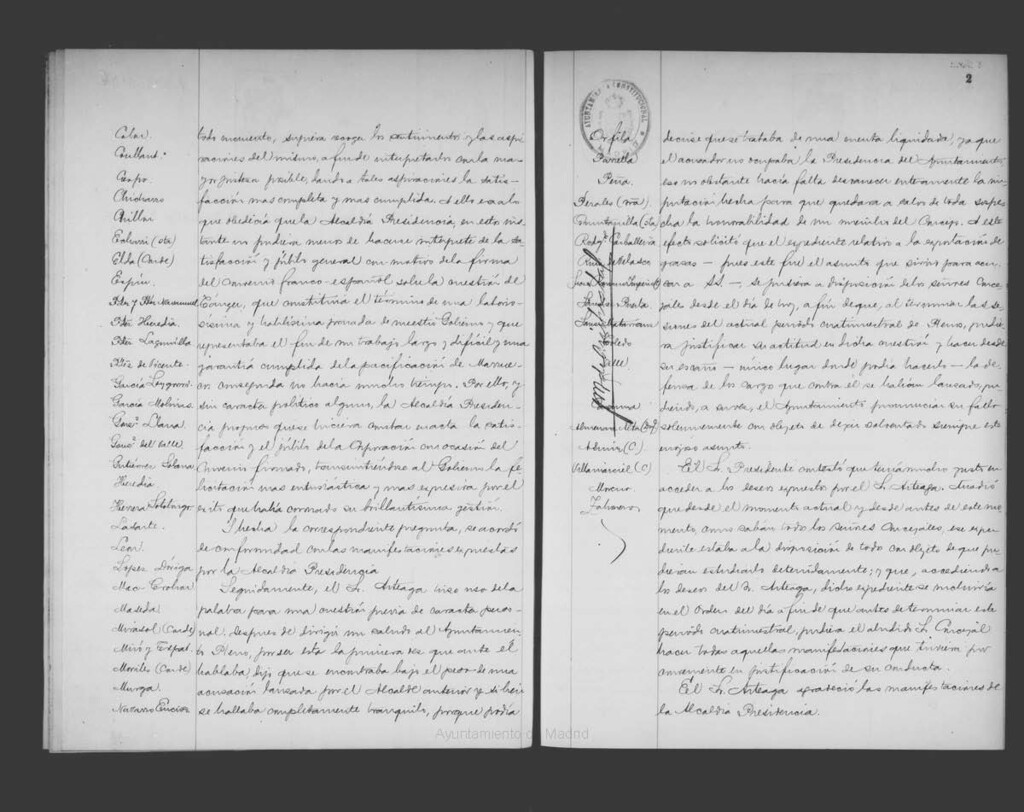 Colar
Coullaut
Crespo
Chicharro
Chillar
Echarri (sta)
Elda (Conde)
Espín
Fdez Heredia
Fdez Lagunilla
Fdez de Vicente
García Loygorri
García Molinas
Gonz. Dana
Gonz. del Valle
Gutiérrez Solana
Heredia
Herrera Sotolongo
Latorre
León
López Dóriga
Mac-Crohon
Maseda
Mirasol (Conde)
Miró y Trepat
Moriles (Conde)
Murga
Navarro Enciso
todo momento, supiera recoger los sentimientos y las aspi-
raciones del mismo, a fin de interpretarlos con la ma-
yor justeza posible, dando a tales aspiraciones la satis-
facción más completa y más cumplida. A ello era a lo
que obedecía que la Alcaldía Presidencia, en estos ins-
tante no pudiera menos de hacerse intérprete de la sa-
tisfacción y júbilo general con motivo de la firma
del Convenio franco-español sobre la cuestión de
Tánger, que constituía el término de una laborio-
sísima y habilísima jornada de nuestro Gobierno y que
representaba el fin de un trabajo largo y difícil y una
garantía cumplida de la pacificación de Marrue-
cos conseguida no hacía mucho tiempo. Por ello, y
sin carácter político alguno, la Alcaldía Presiden-
cia proponía que se hiciera constar en acta la satis-
facción y el júbilo de la Corporación con ocasión del
Convenio firmado, transmitiéndose al Gobierno la fe-
licitación más entusiástica y más expresiva por el
éxito que había coronado su brillantísima gestión.
Y hecha la correspondiente pregunta, se acordó
de conformidad con las manifestaciones expuestas
por la Alcaldía Presidencia
Seguidamente, el Sr. Arteaga hizo uso de la
palabra para una cuestión previa de carácter perso-
nal. Después de dirigir un saludo al Ayuntamien-
to Pleno, por ser esta la primera vez que ante él
hablaba, dijo que se encontraba bajo el peso de una
acusación lanzada por el Alcalde anterior y si bien
se hallaba completamente tranquilo, porque podía
2
AYUNTAMIENTO CONSTITUCIONAL
Orfila
Parrella
Peña
Perales (mar)
Quintanilla (sta)
Rodg. Carballeira
Toledo
Valle
Asmir (C)
Villamarciel (C)
Moreno
Zahonero
decirse que se trataba de una cuenta liquidada, ya que
el acusador no ocupaba la Presidencia del Ayuntamiento,
eso no obstante hacía falta desvanecer enteramente la im-
putación hecha para que quedara a salvo de toda sospe-
cha la honorabilidad de un miembro del Concejo. A este
efecto solicitó que el expediente relativo a la explotación de
gracas — pues este fué el asunto que sirvió para acu-
sar a SS —, se pusiera a disposición de los señores Conce-
jales desde el día de hoy, a fin de que, al terminar las se-
siones del actual período cuatrimestral de Pleno, pudie-
ra justificar su actitud en dicha cuestión y hacer desde
su escaño — único lugar donde podía hacerlo — la de-
fensa de los cargos que contra él se habían lanzado, pu-
diendo, a su vez, el Ayuntamiento pronunciar su fallo
solemnemente con objeto de dejar solventado siempre este
enojoso asunto.
El Sr. Presidente contestó que tenía mucho gusto en
acceder a los deseos expuestos por el Sr. Arteaga. Añadió
que desde el momento actual y desde antes de este mo-
mento, como sabían todos los señores Concejales, ese expe-
diente estaba a la disposición de todos con objeto de que pu-
dieran estudiarlo detenidamente; y que, accediendo a
los deseos del Sr. Arteaga, dicho expediente se incluiría
en el Orden del día a fin de que antes de terminar este
período cuatrimestral, pudiera el aludido Sr. Concejal
hacer todas aquellas manifestaciones que tuviera por
conveniente en justificación de su conducta.
El Sr. Arteaga agradeció las manifestaciones de
la Alcaldía Presidencia.
Ayuntamiento de Madrid